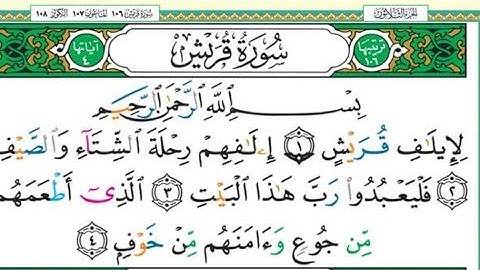 الجزء الثلاثون سورة قريش ١٠٦ الماعون ١٠٧ الكوثر ١٠٨
ترتيبها ١٠٦ سُورَةُ قُرَيْشٍ آياتها ٤
بِسْمِ ٱللَّهِ ٱلرَّحْمَٰنِ ٱلرَّحِيمِ
لِإِيلَٰفِ قُرَيْشٍ ١ إِۦلَٰفِهِمْ رِحْلَةَ ٱلشِّتَآءِ وَٱلصَّيْفِ
٢ فَلْيَعْبُدُوا۟ رَبَّ هَٰذَا ٱلْبَيْتِ ٣ ٱلَّذِىٓ أَطْعَمَهُم
مِّن جُوعٍ وَءَامَنَهُم مِّنْ خَوْفٍۭ ٤